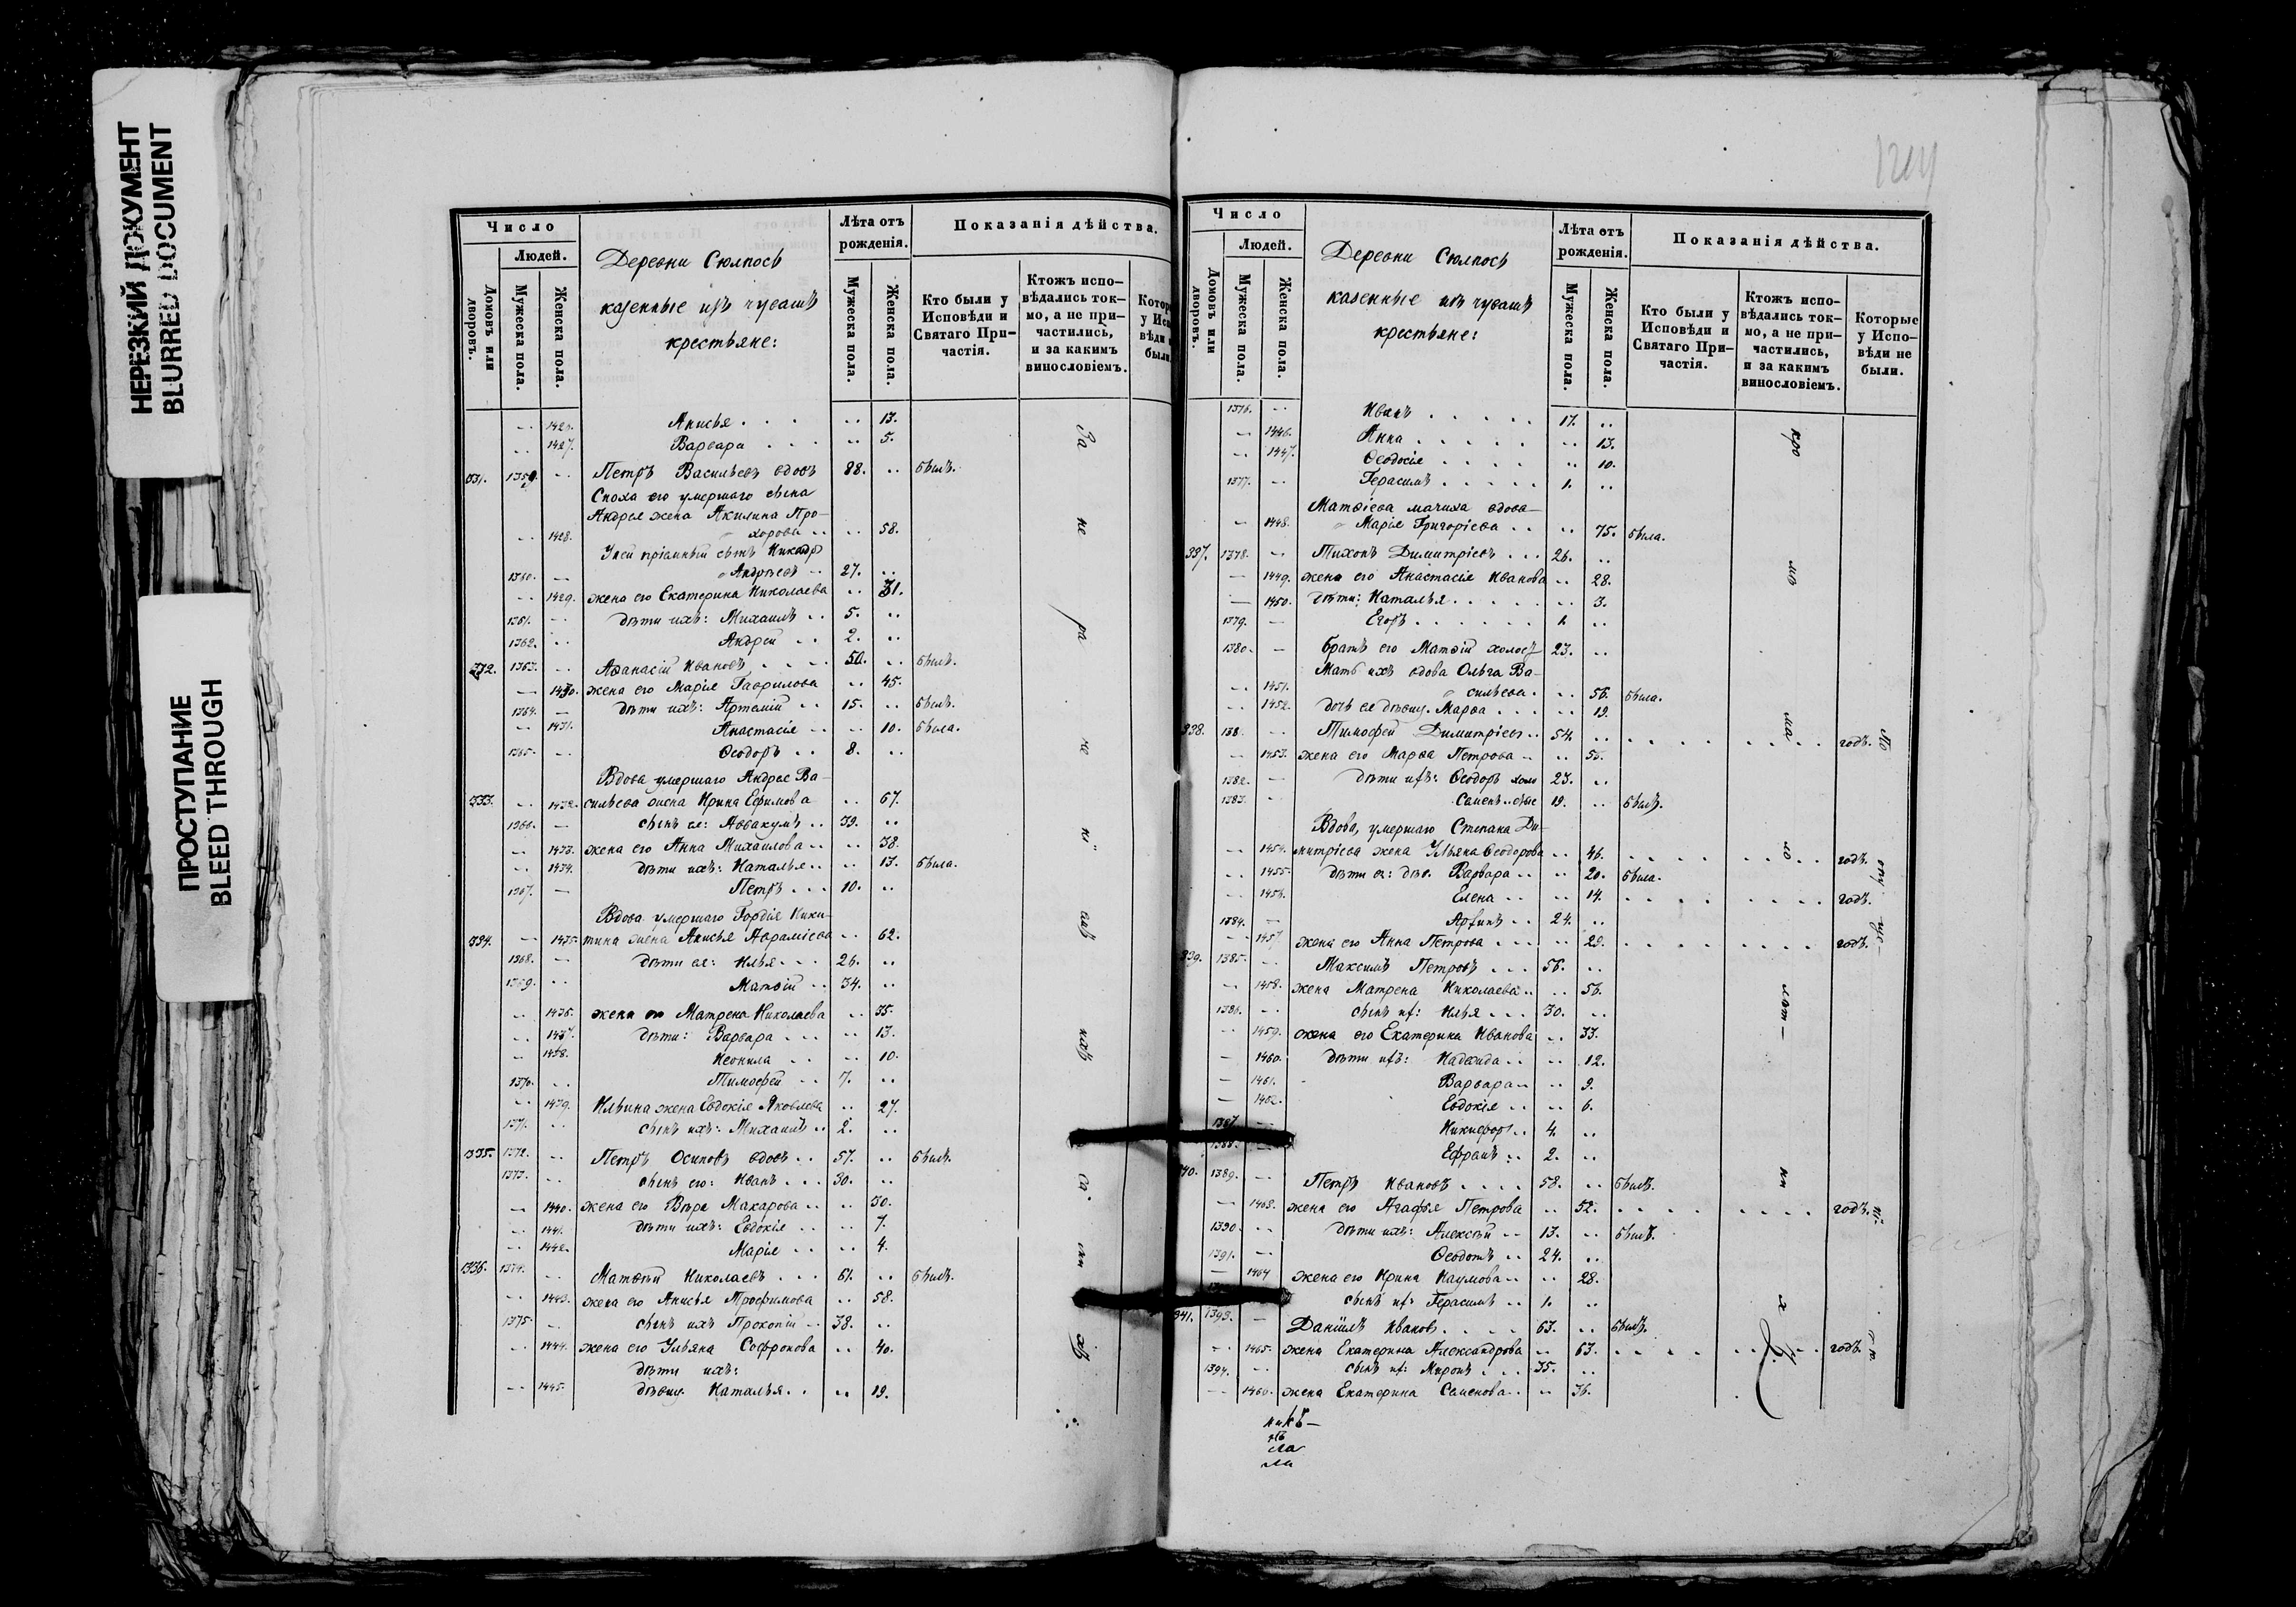 НЕРЕЗКИЙ ДОКУМЕНТ
BLURRED DOCUMENT
ПРОСТУПАНИЕ
BLEED THROUGH
Число
Людей.
Домовъ или дворовъ.
Мужеска пола.
Женска пола.
Деревни Сюлпосъ
казенные изъ чувашъ
крестьяне:
Лѣта отъ рожденія.
Мужеска пола.
Женска пола.
Показанія дѣйства.
Кто были у Исповѣди и Святаго При-частія.
Ктожъ испо-вѣдались ток-мо, а не при-частились, и за какимъ винословіемъ.
Анисья . . . .. 13.
.. 1427. Варвара . . . .. 5.
Петръ Васильевъ вдовъ 88. .. былъ.
Сноха его умершаго сына
Андрея жена Акилина Про-
.. 1428. хорова .. .. 58.
Андрѣевъ .. 27. ..
.. 1429. жена его Екатерина Николаева .. 31.
1361. .. дѣти ихъ: Михаилъ .. 5. ..
1362. .. Андрей .. 2. ..
332. 1363. .. Аѳанасій Ивановъ . . . . 50. .. былъ.
— 1430. жена его Марія Гаврилова .. 45.
1364. — дѣти ихъ: Артемій .. 15. .. былъ.
.. 1431. Анастасія .. .. 10. была.
1365. .. Ѳеодоръ .. 8. ..
Вдова умершаго Андрея Ва-
333. .. 1432. сильева жена Ирина Ефимова .. 67.
1366. — сынъ ея: Аввакумъ .. 39. ..
.. 1433. жена его Анна Михаилова .. .. 38.
.. 1434. дѣти ихъ: Наталья .. .. 13. была.
1367. — Петръ . . . 10. ..
Вдова умершаго Гордія Ники-
334. — 1435. тина жена Анисья Авраміева .. 62.
1368. — дѣти ея: Илья . . . 26. ..
1369. .. Матѳій .. 34. ..
.. 1436. жена его Матрена Николаева .. 35.
.. 1437. дѣти: Варвара . . . .. 13.
.. 1438. Неонила .. .. 10.
1370. .. Тимоѳей .. 7. ..
.. 1439. Ильина жена Евдокія Яковлева .. 27.
1371. .. сынъ ихъ: Михаилъ .. 2. ..
335. 1372. .. Петръ Осиповъ вдовъ .. 57. .. былъ.
1373. .. сынъ его: Иванъ . . . 30. ..
— 1440. жена его Вѣра Макарова .. .. 30.
.. 1441. дѣти ихъ: Евдокія .. .. 7.
.. 1442. Марія .. .. 4.
336. 1374. .. Матѳей Николаевъ . . . 61. .. былъ.
.. 1443. жена его Анисья Трофимова .. 58.
1375. .. сынъ ихъ Прокопій .. 38. ..
.. 1444. жена его Ульяна Софронова .. 40.
дѣти ихъ:
.. 1445. дѣвиц. Наталья . . .. 19.
Число
Людей.
Домовъ или дворовъ.
Мужеска пола.
Женска пола.
Деревни Сюлпосъ
казенные изъ чувашъ
крестьяне:
Лѣта отъ рожденія.
Мужеска пола.
Женска пола.
Показанія дѣйства.
Кто были у Исповѣди и Святаго При-частія.
Ктожъ испо-вѣдались ток-мо, а не при-частились, и за какимъ винословіемъ.
Которые у Испо-вѣди не были.
1376. .. Иванъ . . . . . 17. ..
— 1446. Анна . . . . . .. 13.
.. 1447. Ѳеодосія . . . . .. 10.
1377. .. Герасимъ . . . . . 1. ..
Матѳіева мачиха вдова
.. 1448. Марія Григоріева .. .. 75. была.
337. 1378. .. Тихонъ Димитріевъ . . . 26. ..
— 1449. жена его Анастасія Иванова .. 28.
— 1450. дѣти: Наталья . . . . . .. 3.
1379. — Егоръ . . . . . . 1. ..
1380. — братъ его Матѳій холост 23. ..
Мать ихъ вдова Ольга Ва-
.. 1451. сильева . .. 56. была.
.. 1452. дочь ея дѣвиц. Марѳа . . . .. 19.
338. Тимоѳей Димитріев .. 54. .. . . . . . . . . годъ.
— 1453. жена его Марѳа Петрова .. .. 55.
1382. — дѣти ихъ: Ѳеодоръ холо 23. ..
1383. .. Семенъ .. 19. .. былъ.
Вдова, умершаго Степана Ди-
.. 1454. митріева жена Ульяна Ѳеодорова .. 46. . . . . . . . . годъ.
.. 1455. дѣти ея: дѣв. Варвара .. .. 20. была.
.. 1456. Елена .. .. 14. . . . . . . . . годъ.
1384. — .. 24. ..
.. 1457. жена его Анна Петрова . . . .. 29. . . . . . . . . годъ.
339. 1385. .. Максимъ Петровъ . . . 56. ..
.. 1458. жена Матрена Николаева .. .. 56.
1386. .. сынъ их: Илья . . . 30. ..
.. 1459. жена его Екатерина Иванова .. 33.
— 1460. дѣти их: Надежда .. .. 12.
— 1461. Варвара .. .. 9.
— 1462. Евдокія .. .. 6.
1387. Никифор .. 4. ..
1388. Ефраимъ .. 2. ..
340. 1389. — Петръ Ивановъ . . . . 58. .. былъ.
— 1463. жена его Агафья Петрова .. 52. . . . . . . . . годъ.
1390. .. дѣти ихъ: Алексѣй .. 13. .. былъ.
1391. .. Ѳеодотъ .. 24. ..
— 1464 жена его Ирина Наумова .. .. 28.
сынъ их: Герасимъ .. 1. ..
341. 1393. — Даніилъ Иванов . . . . 63. .. былъ.
.. 1465. жена Екатерина Александрова .. 63. . . . . . . . . годъ.
1394. .. сынъ их: Миронъ . . . 35. ..
— 1466. жена Екатерина Семенова .. .. 36.